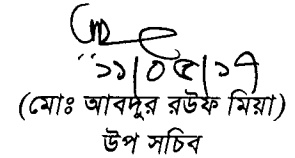 ১১/০৫/১৭
(মোঃ আবদুর রউফ মিয়া)
উপ সচিব